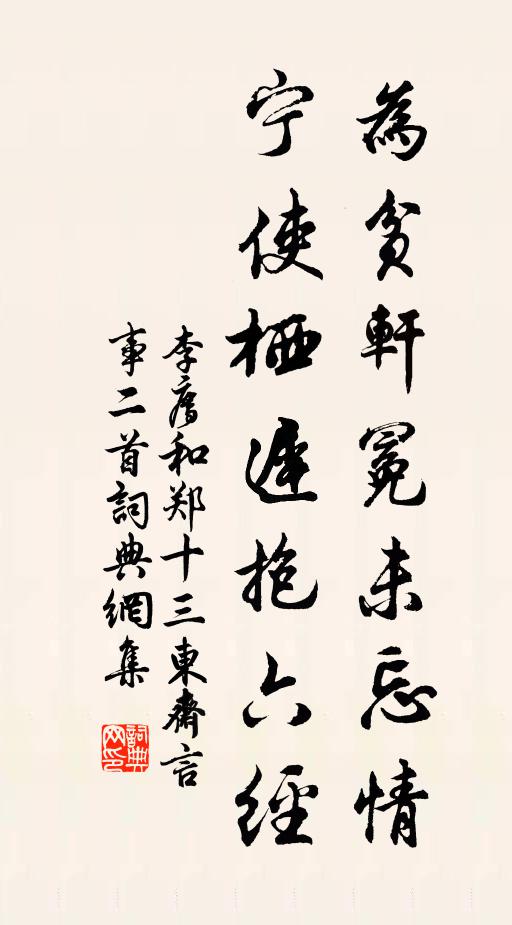 為貧軒冕未忘情
宁使栖遲抱六經
李廌和郑十三東齋言
事二首詞典網集
詞典网印